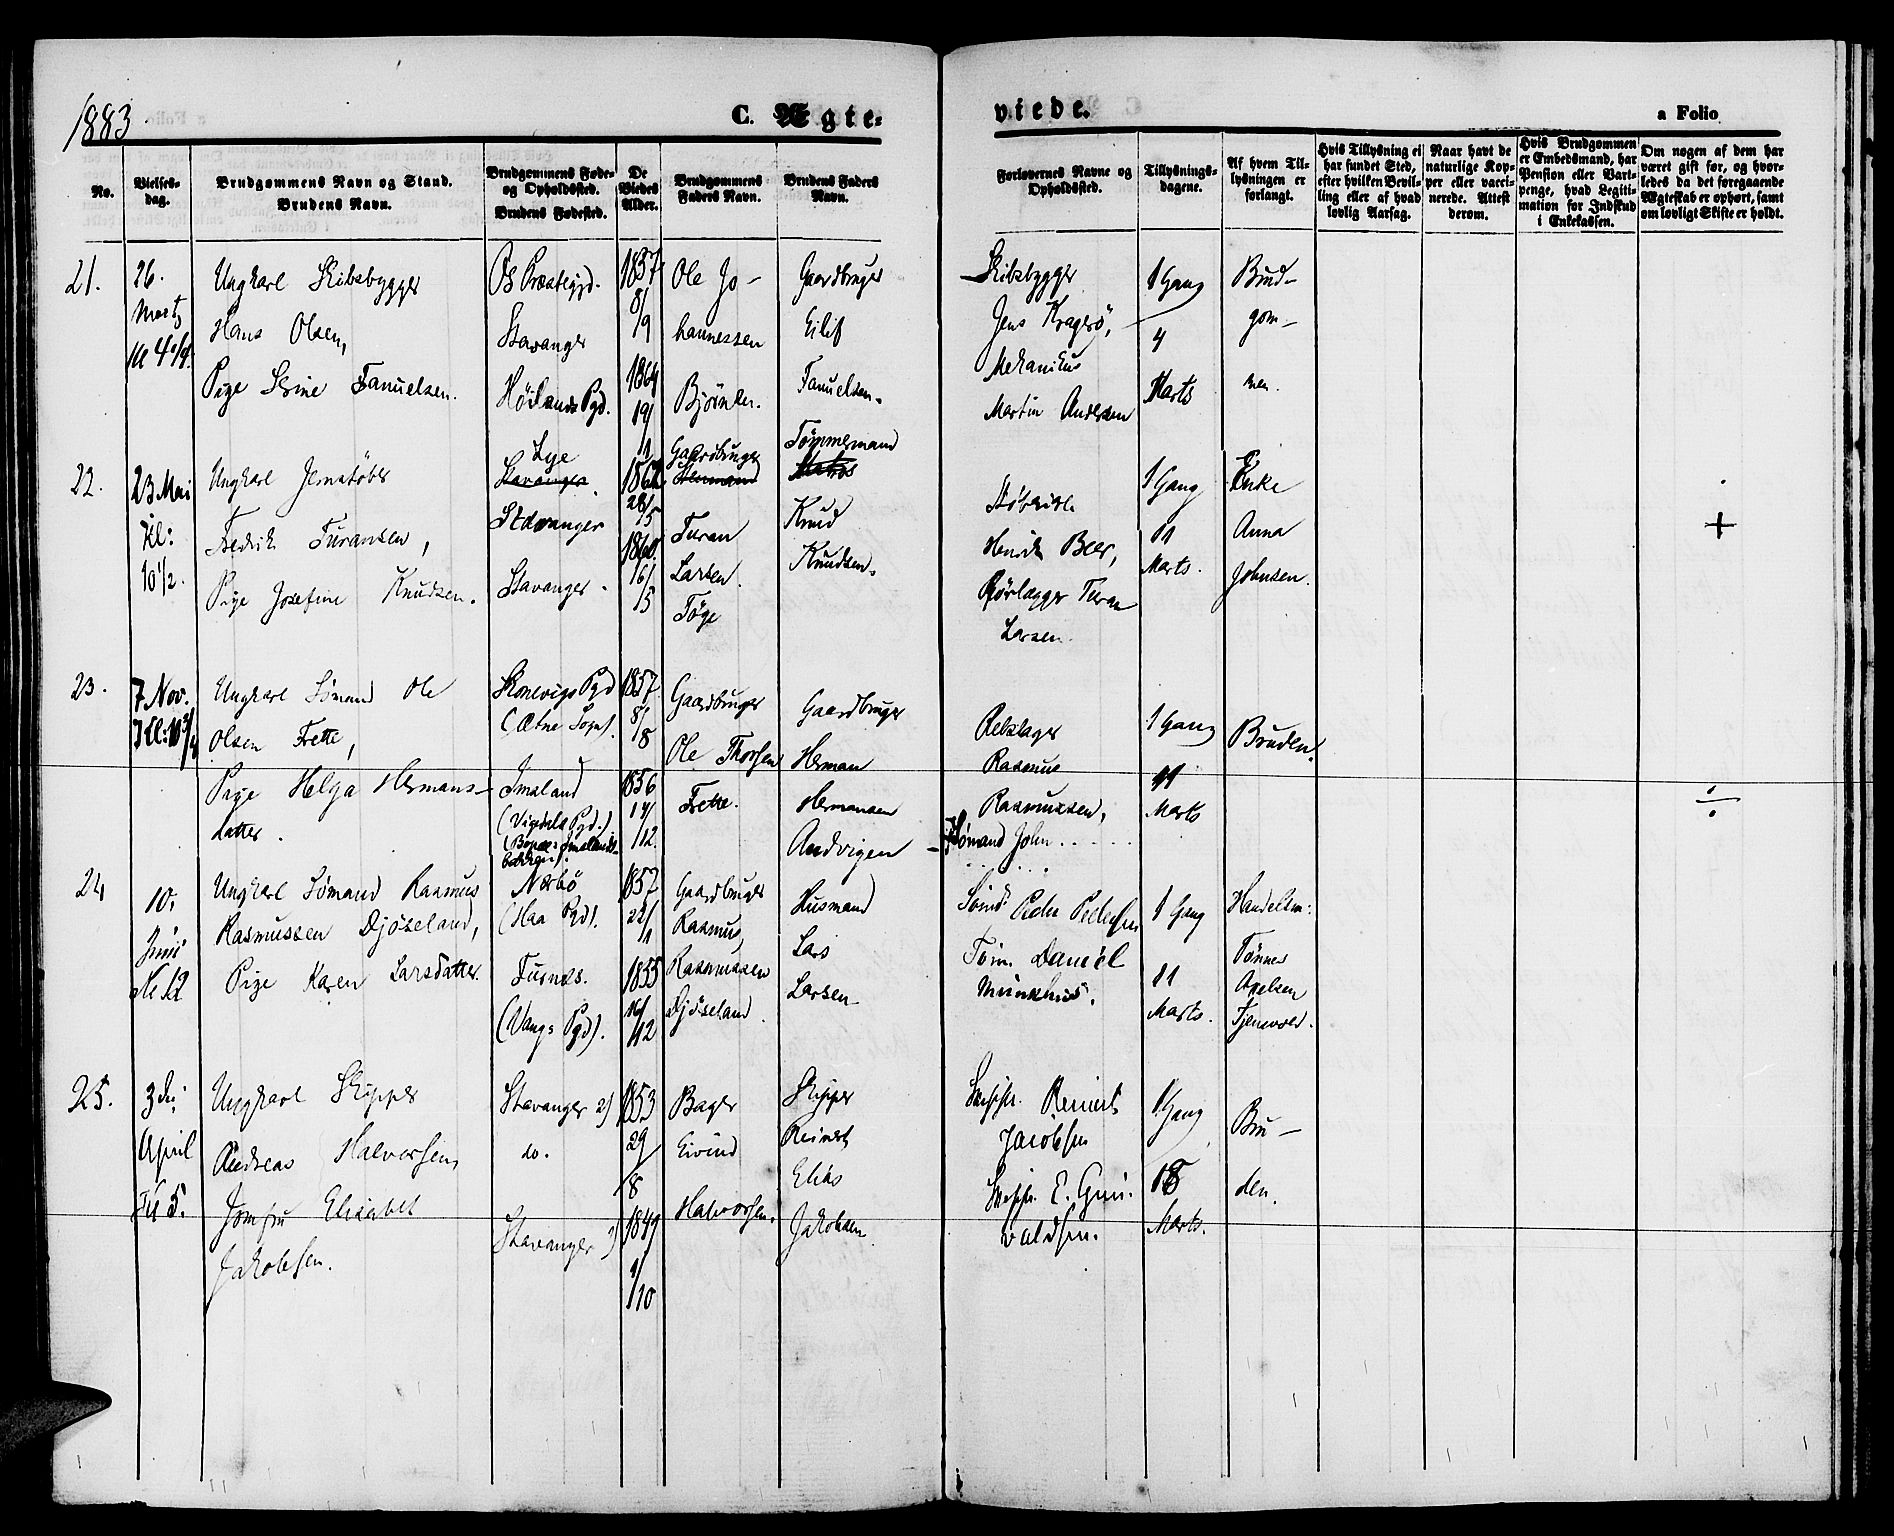 1883
C. Ægte-
viede.
a Folio
No.
Vielses-
dag.
Brudgommens Navn og Stand.
Brudens Navn.
Brudgommens Føde-
og Opholdssted.
Brudens Fødested.
De
Viedes
Alder.
Brudgommens
Faders Navn.
Brudens Faders
Navn.
Forlovernes Navne og
Opholdssted.
Tillysnings-
dagene.
Af hvem Til-
lysningen er
forlangt.
Hvis Tillysning ei
har fundet Sted,
efter hvilken Bevil-
ling eller af hvad
lovlig Aarsag.
Naar havt de
naturlige Kop-
per eller vacci-
nerede. Attest
derom.
Hvis Brudgommen
er Embedsmand, har
Pension eller Vart-
penge, hvad Legiti-
mation for Indskud
i Enkekassen.
Om nogen af dem har
været gift før, og hvor-
ledes da det foregaaende
Ægteskab er ophørt, samt
om lovligt Skifte er holdt.
21.
26.
Marts
Kl 4 1/4.
Ungkarl Skibsbygger
Hans Olsen,
Pige Stine Fanuelsen.
Os Præstegd.
Stavanger
Höilands Pgd.
1857
8/
/9
1864
19/
/1
Ole Jo-
hannessen
Björnen.
Gaardbruger
Eilif
Fanuelsen.
Skibsbygger
Jens Kragerö,
Mekanikus
Martin Andersen
1 Gang
4
Marts
Brud-
gom-
men.
22.
23 Mai
Kl:
10 1/2.
Ungkarl Jernstöber
Fredrik Turansen,
Pige Josefine Knudsen.
Lye
Stavanger.
Stavanger
Stavanger.
1862
28/
/5
1860.
16/
/5
Gaardbruger
Turan
Larsen.
Töge
Tömmermand
Matros
Knud
Knudsen.
Henrik Beer,
Rörlægger Turan
Larsen.
1 Gang
11
Marts.
Enke
Anna
Johnsen.
+
23.
7 Nov.
Kl: 10 3/4
Ungkarl Sömand Ole
Olsen Frette,
Pige Helga Hermans-
datter.
Skonevigs Pgd
(Ætne Sogn).
Imsland
(Vigedals Pgd.)
1857.
8/
/8
1856
14/
/12.
Gaardbruger
Ole Thorsen
Frette.
Gaardbruger
Herman
Hermansen
Andvigen
Rebslager
Rasmus
Rasmussen,
Sömand John . . . . .
1 Gang
11
Marts
Bruden.
÷
24
10.
Juni
Kl 12
Ungkarl Sömand Rasmus
Rasmussen Djöseland,
Pige Karen Larsdatter.
Nærbö
(Haa Pgd).
Furnes.
(Vangs Pgd).
1857
22/
/1
1855
16/
/12
Gaardbruger
Rasmus,
Rasmussen
Djöseland.
Husmand
Lars
Larsen
Sömd Peder Pedersen
Töm. Daniel
Munkhus.
1 Gang
11
Marts.
Handelsm:
Tönnes
Axelsen
Tjensvold.
25.
3die
April
Kl 5.
Ungkarl Skipper
Andreas Halvorsen,
Jomfru Elisabet
Jakobsen.
Stavanger 2)
do.
Stavanger 1)
1853
29/
/8
1849
1/
/10
Bager
Eivind
Halvorsen.
Skipper
Reinert
Elias
Jakobsen.
Skippr. Reinert
Jacobsen
Skippr. E. Grun-
valdsen.
1 Gang
18
Marts.
Bru-
den.